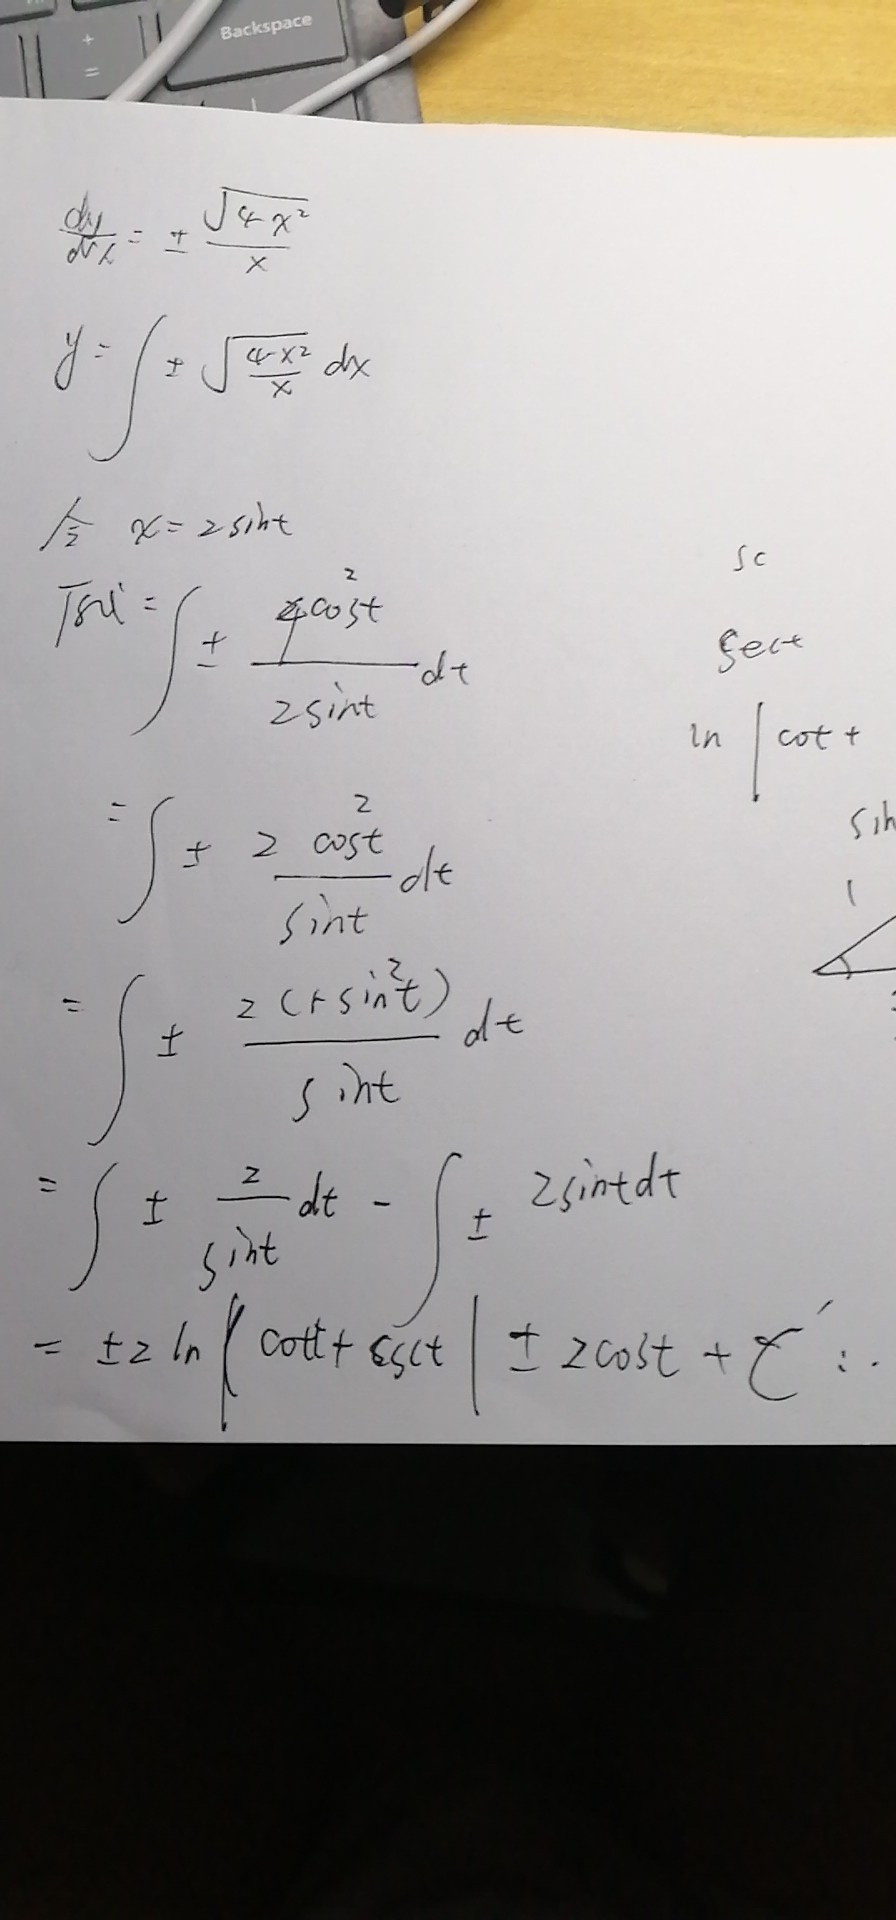 Backspace
+
=
dy/dx = ± √(4-x²)/x
y = ∫ ± √((4-x²)/x) dx
令 x = 2sint
原式 = ∫ ± 4cos²t/2sint dt
= ∫ ± 2 cos²t/sint dt
= ∫ ± 2(1-sin²t)/sint dt
= ∫ ± 2/sint dt - ∫ ± 2sintdt
= ±2 ln | cott + csct | ± 2cost + C
sc
sect
ln | cot +
sin
1